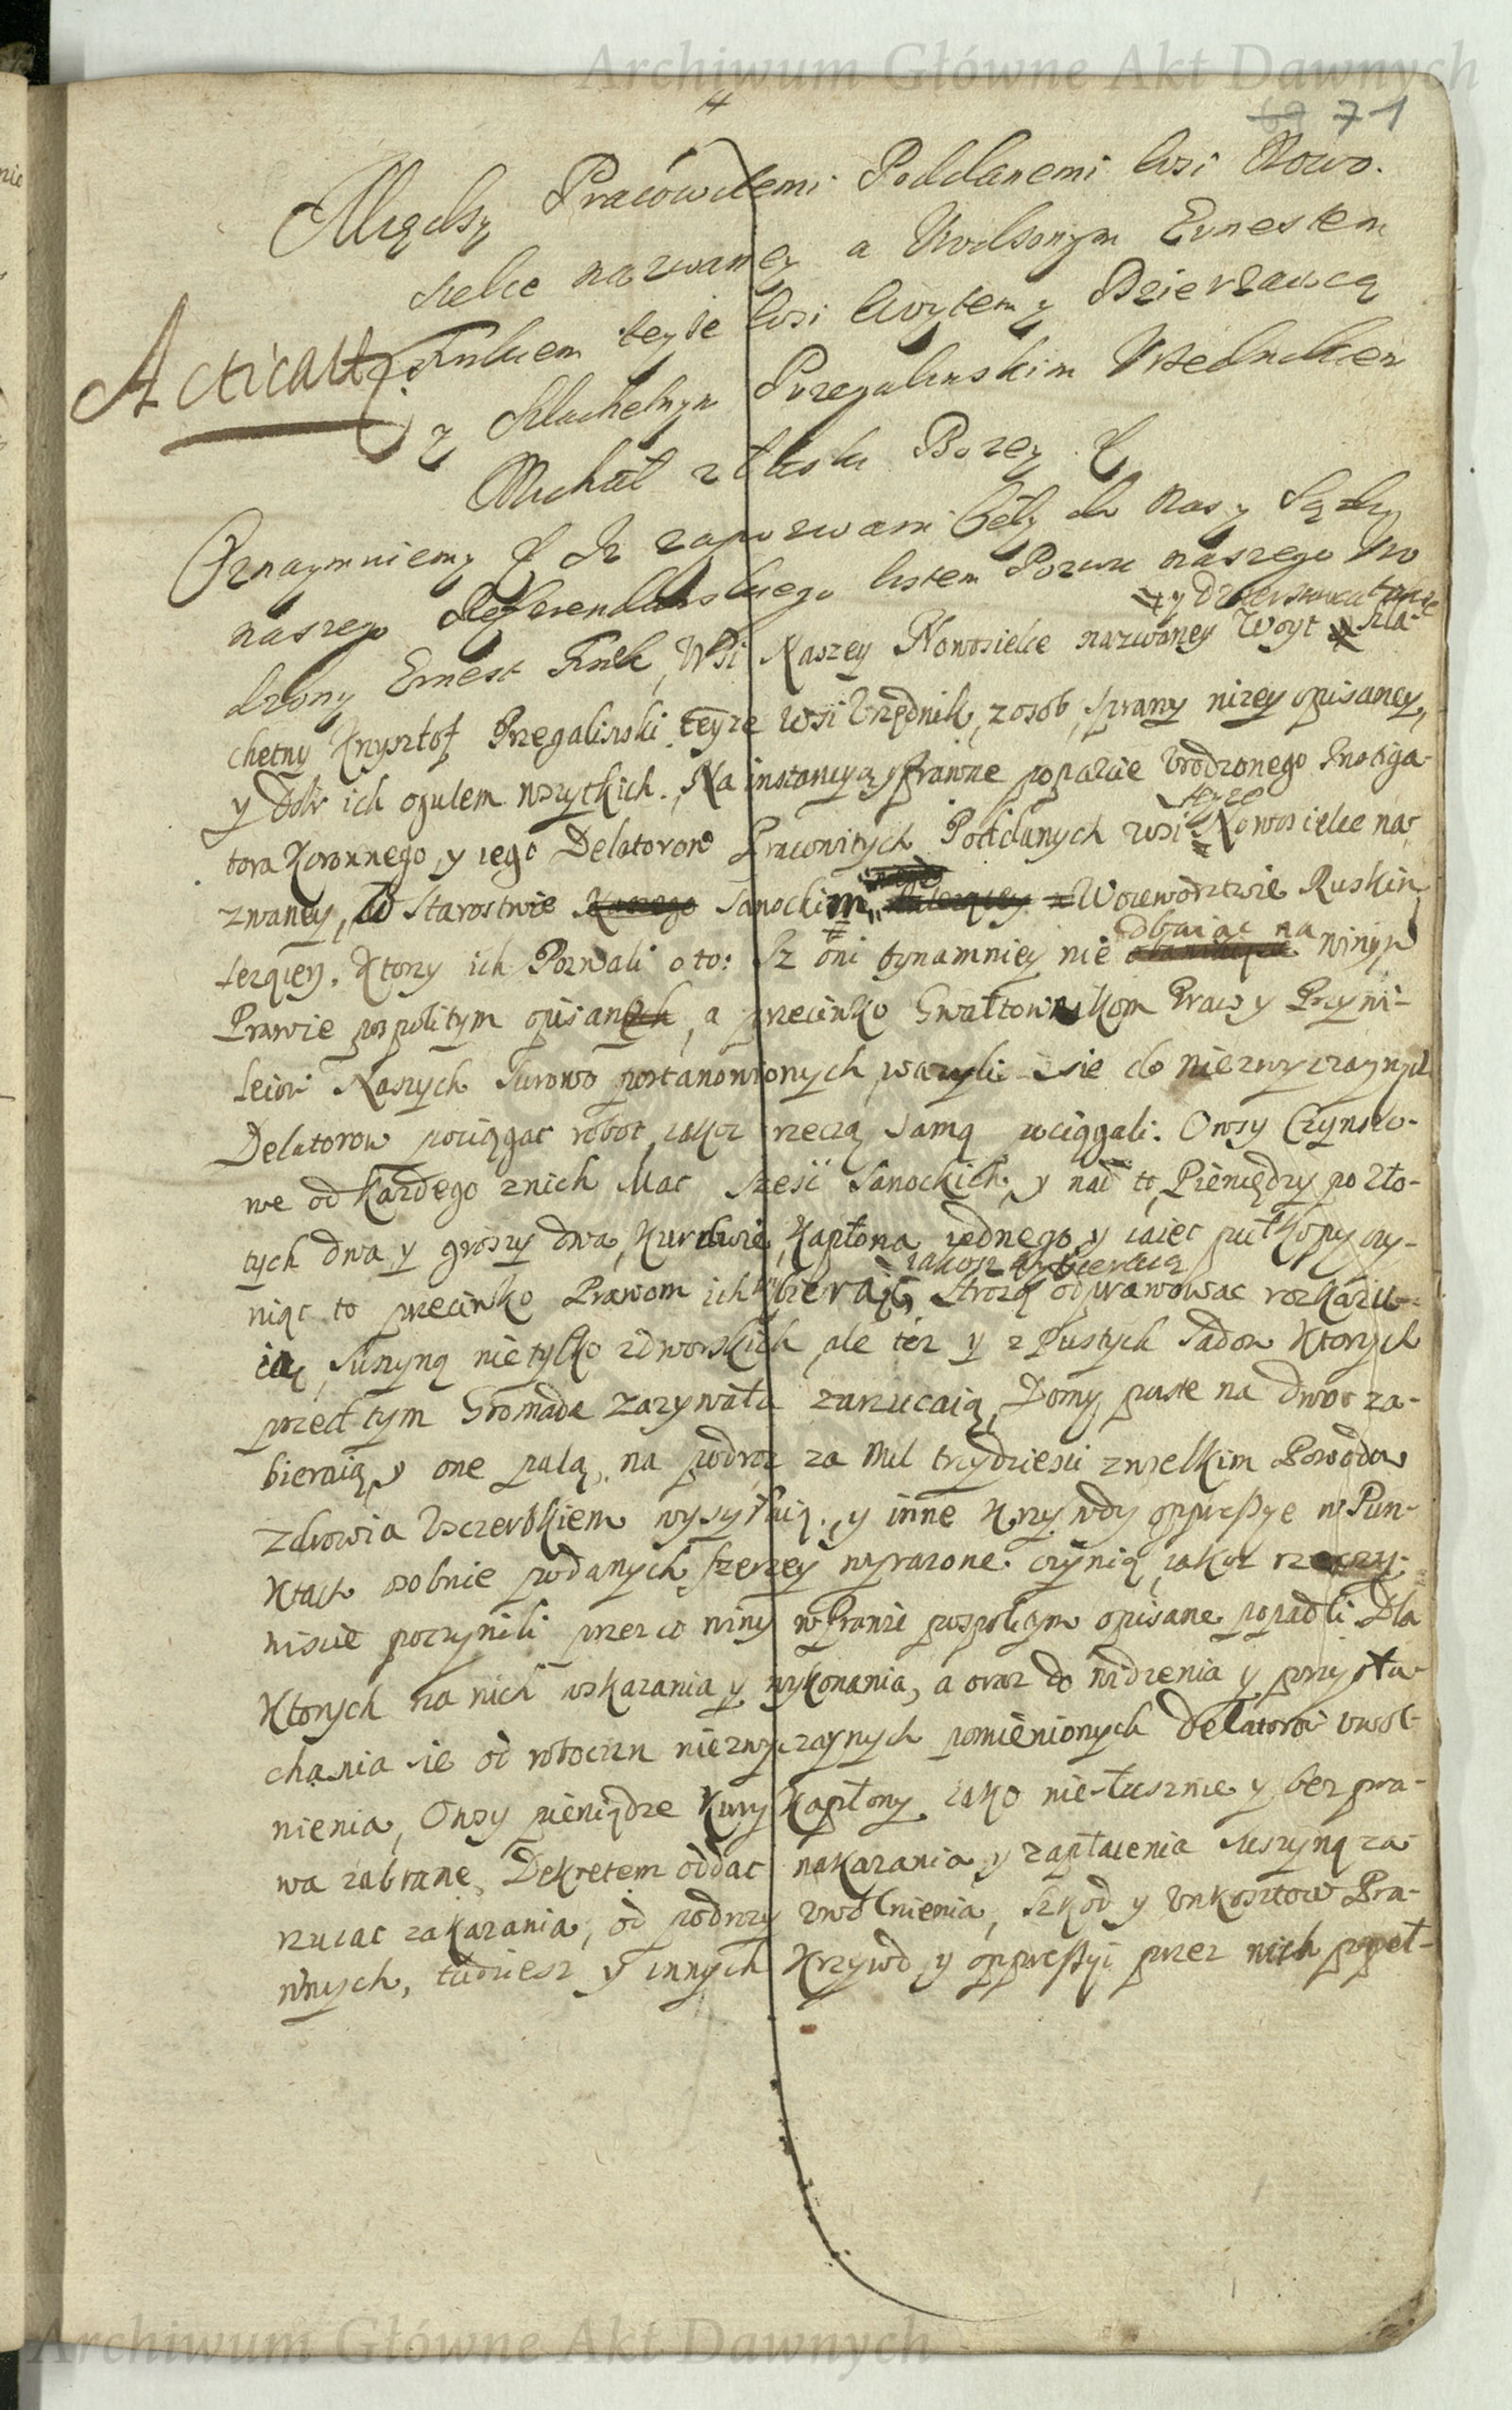 Archiwum Główne Akt Dawnych
71
Między Pracowitemi Poddanemi wsi Nowo-
sielce nazwaney a Urodzonym Ernestem
Finkiem teyże wsi woytem y Dzierżawcą
Acticatt
y Szlachetnym Przegalinskim Urzednikiem
Michał z Łaski Bozey &
Oznaymuiemy & Iz zapozwani byli do Nas y Sądu
naszego Referendarskiego listem Pozwu naszego Uro
y Dzierzawca także
dzony Ernest Fink, Wsi Naszey Nowosielce nazwaney Woyt Szla-
chetny Krzysztof Przegalinski teyze wsi Urzędnik, z osob, sprawy nizey opisaney,
y Dobr ich ogulem wszytkich. Na instancyą y prawne poparcie Urodzonego Instiga-
tora Koronnego, y iego Delatorow Pracowitych Poddanych wsi teyze Nowosielce na-
zwaney, w Starostwie Sanockim, Woiewodztwie Ruskim
lezącey. Ktorzy ich Pozwali o to: Iz oni bynamniey nie dbaiąc na winy w
Prawie pospolitym opisane, a przeciwko Gwałtownikom Praw y Przywi-
leiow Naszych surowo postanowionych, wazyli sie do niezwyczaynych
Delatorow pociągac robot, iakoz rzeczą samą pociągali. Owsy Czynszo-
we od każdego z nich Mac sześć Sanockich, y nad to Pieniędzy po zło-
tych dwa y groszy dwa, Kur dwie, Kapłona iednego y iaiec puł kopy czy-
iakosz wybieraią
niąc to przeciwko Prawom ich wybieraią, Strozą odprawowac rozkazu-
ią, Suszyną nie tylko z dworskich ale też y z Pustych Sadow Ktorych
przed tym Gromada zazywała zarzucaią, Domy puste na dwor za-
bieraią, y one palą, na podroz za Mil trzydziesci z wielkim Powodow
zdrowia Uszczerbkiem wysyłaią, y inne Krzywdy oppressye w Pun-
ktach osobnie podanych szerzey wyrazone czynią, iakoz rzeczy-
wiscie poczynili przez co winy w Prawie pospolitym opisane popadli Dla
Ktorych na nich wskazania y wykonania, a oraz do widzenia y przysłu-
chania sie od roboczn niezwyczaynych pomienionych Delatorow uwol-
nienia, Owsy pieniądze Kury Kapłony iako niesłusznie y bez pra-
wa zabrane, Dekretem oddac nakazania y zapłacenia Suszyną za-
rzucac zakazania, od podrozy uwolnienia, szkod y Unkosztow Pra-
wnych, tudziesz y innych Krzywd y oppressyi przez nich popeł-
Archiwum Główne Akt Dawnych